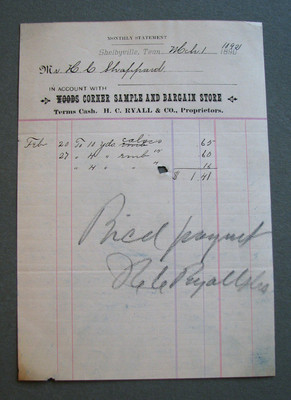 MONTHLY STATEMENT
Shelbyville, Tenn. Mch 1 1890
Mr H C Shappard
IN ACCOUNT WITH
WOODS CORNER SAMPLE AND BARGAIN STORE
Terms Cash. H. C. RYALL & CO., Proprietors.
Feb 20 To 10 yds calico 65
27 " 4 " " 60
" 4 " " 16
$ 1.41
Recd paymt
H C Ryall & Co